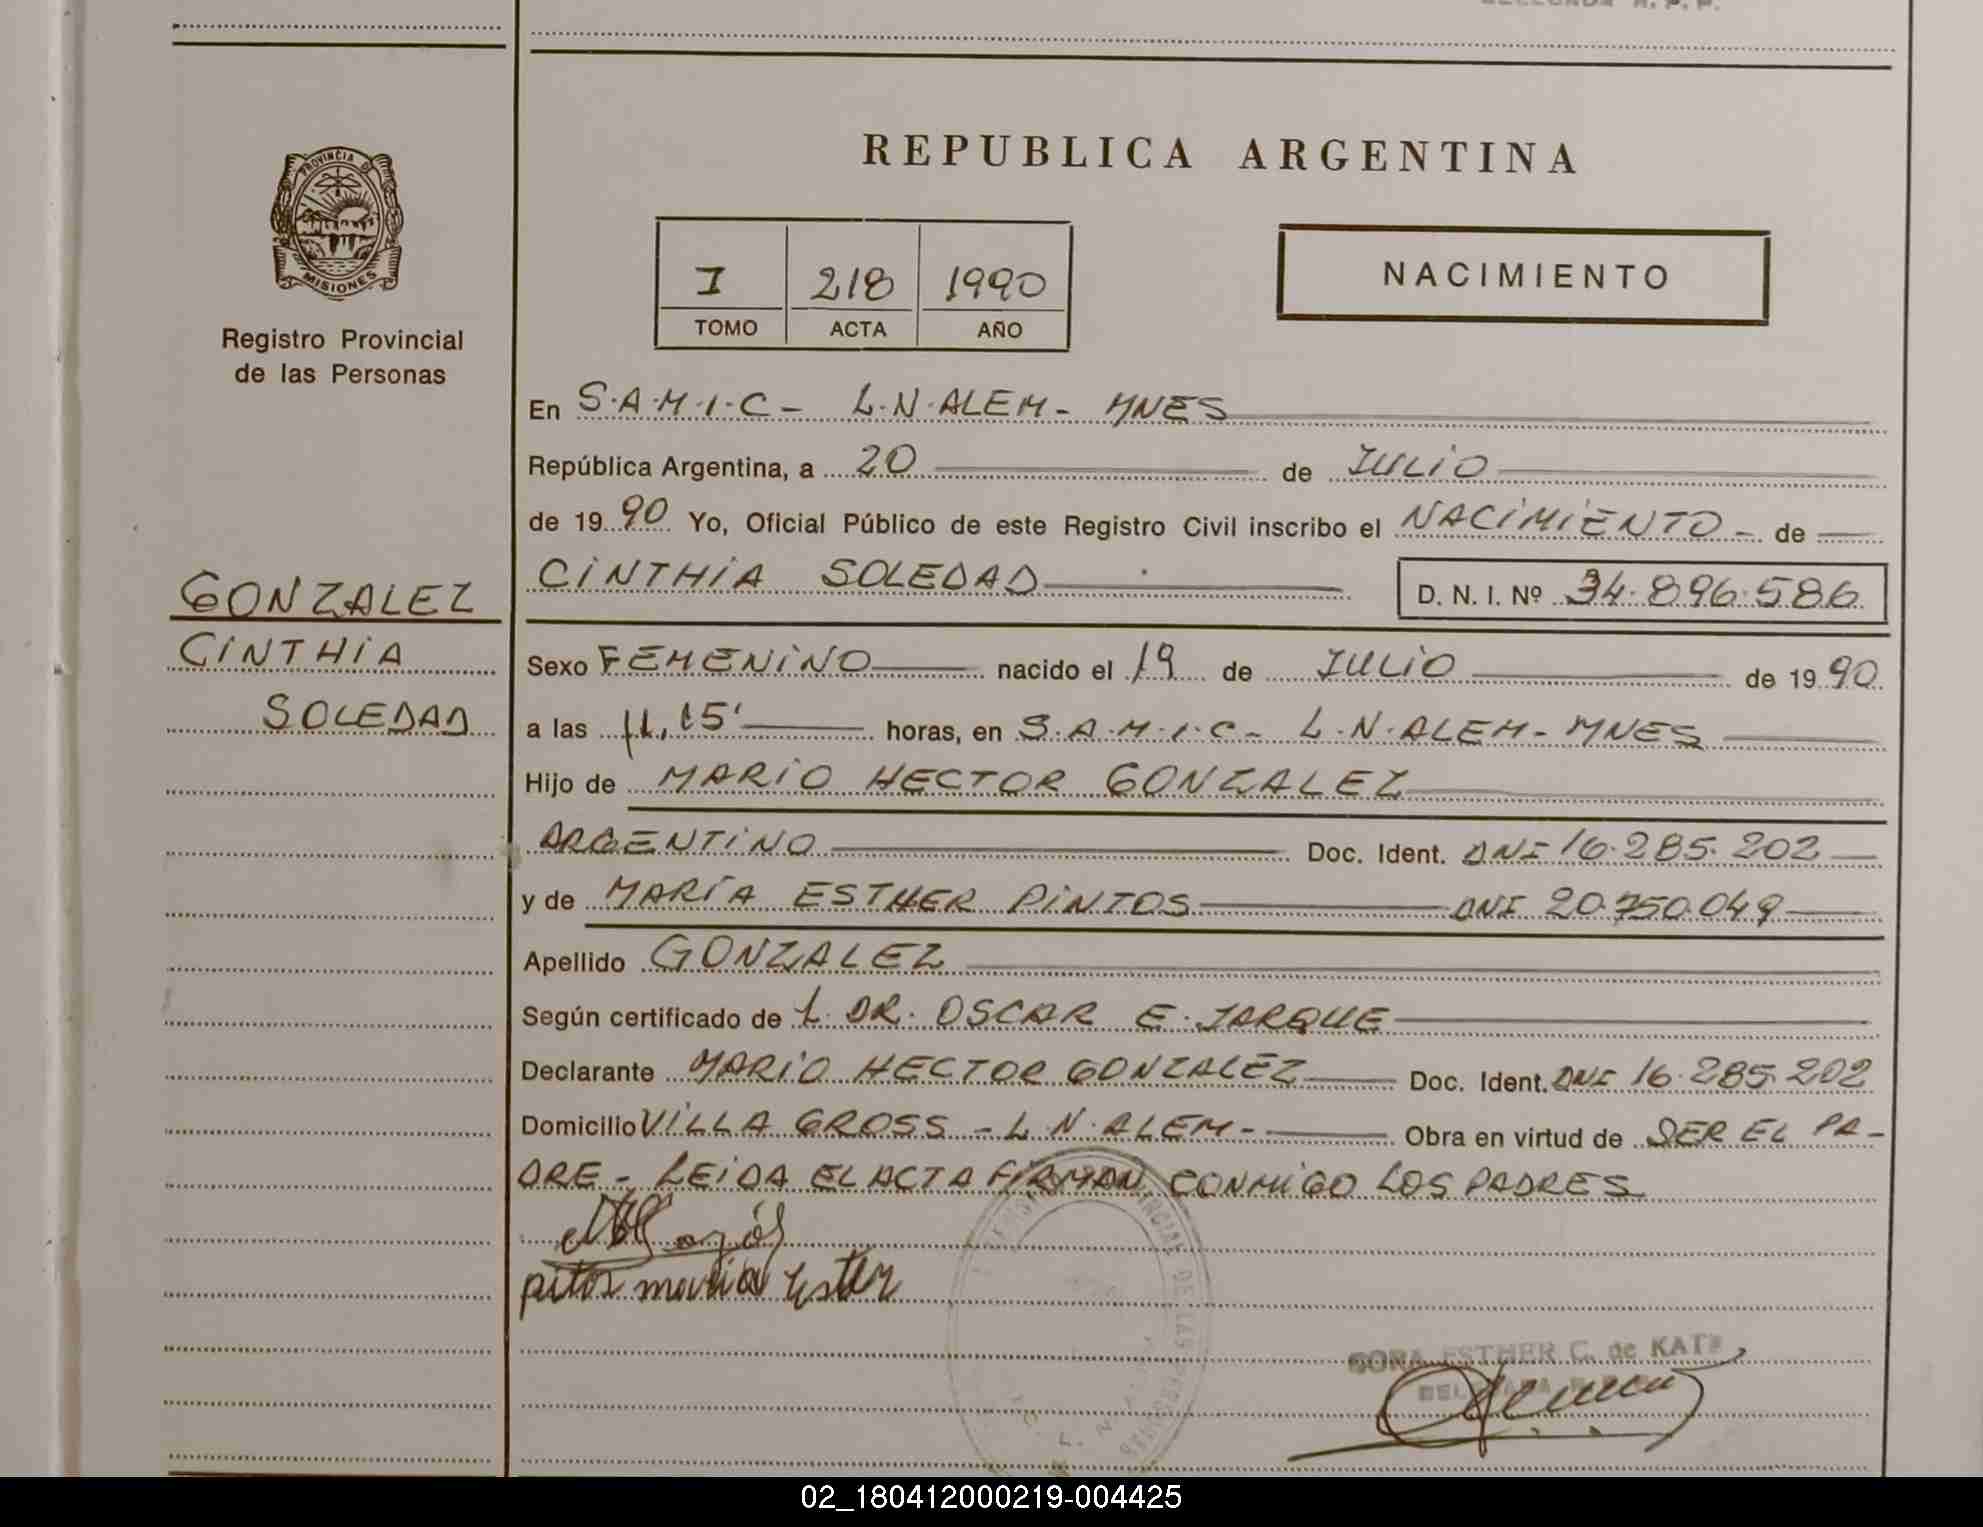 REPUBLICA ARGENTINA
PROVINCIA DE
MISIONES
Registro Provincial
de las Personas
I 218 1990
TOMO ACTA AÑO
NACIMIENTO
En S.A.M.I.C - L.N.ALEM - MNES
República Argentina, a 20 de JULIO
de 1990 Yo, Oficial Público de este Registro Civil inscribo el NACIMIENTO - de
CINTHIA SOLEDAD D. N. I. Nº 34.896.586
GONZALEZ
CINTHIA
SOLEDAD
Sexo FEMENINO nacido el 19 de JULIO de 1990
a las 11,15' horas, en S.A.M.I.C - L.N.ALEM - MNES
Hijo de MARIO HECTOR GONZALEZ
ARGENTINO Doc. Ident. DNI 16.285.202
y de MARÍA ESTHER PINTOS DNI 20.750.049
Apellido GONZALEZ
Según certificado de L. DR. OSCAR E. JARQUE
Declarante MARIO HECTOR GONZALEZ Doc. Ident. DNI 16.285.202
Domicilio VILLA GROSS - L.N.ALEM - Obra en virtud de SER EL PA-
DRE - LEIDA EL ACTA FIRMAN CONMIGO LOS PADRES
pitos maria Ester
ESTHER C. de KATZ
02_180412000219-004425